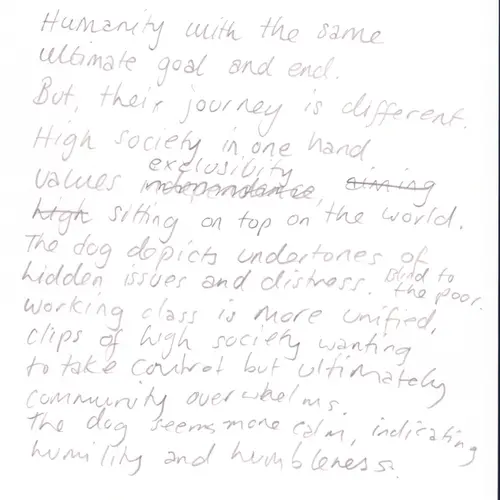 Humanity with the same
ultimate goal and end.
But, their journey is different.
High society in one hand
exclusibity
values independance, aiming
high sitting on top on the world.
The dog depicts undertones of
hidden issues and distress. Blind to
the poor.
working class is more unified,
clips of high society wanting
to take control but ultimately
community overwhelms.
The dog seems more calm, indicating
humility and humbleness.